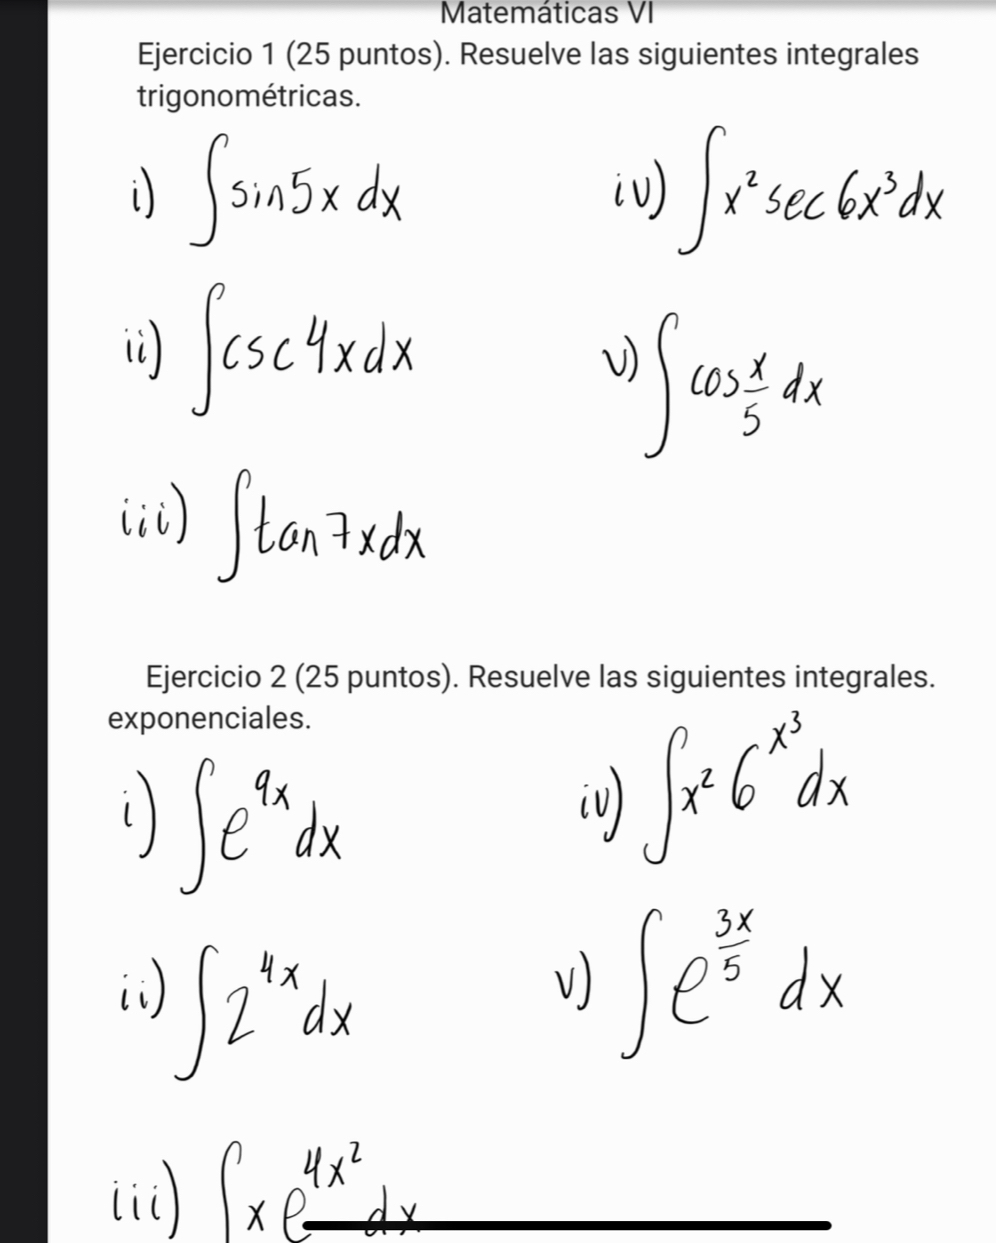 Matemáticas VI
Ejercicio 1 (25 puntos). Resuelve las siguientes integrales
trigonométricas.
i) ∫sin5x dx
iv) ∫x² sec 6x³dx
ii) ∫csc4xdx
v) ∫cos x/5 dx
iii) ∫tan7xdx
Ejercicio 2 (25 puntos). Resuelve las siguientes integrales.
exponenciales.
i) ∫e^{9x} dx
iv) ∫x² 6^{x³} dx
ii) ∫2^{4x} dx
v) ∫e^{3x/5} dx
iii) ∫x e^{4x²} dx